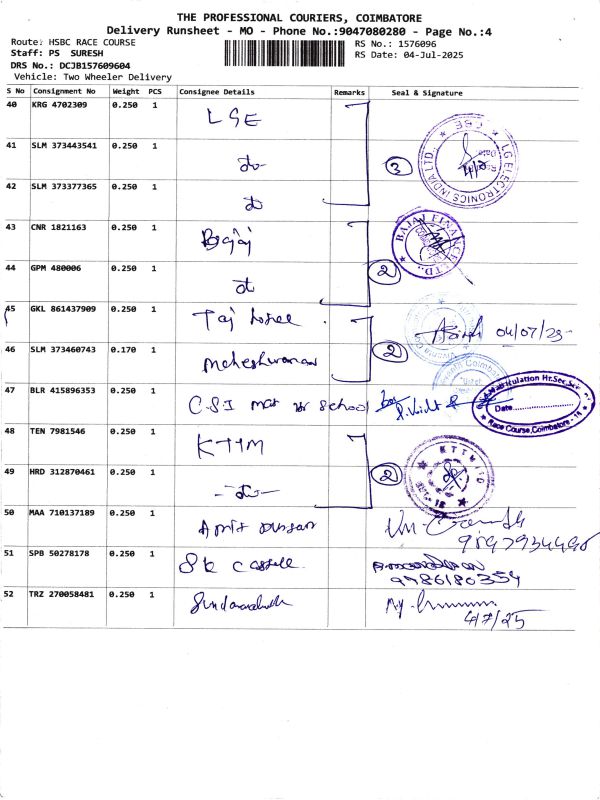 THE PROFESSIONAL COURIERS, COIMBATORE
Delivery Runsheet - MO - Phone No.:9047080280 - Page No.:4
Route: HSBC RACE COURSE
RS No.: 1576096
Staff: PS SURESH
RS Date: 04-Jul-2025
DRS No.: DCJB157609604
Vehicle: Two Wheeler Delivery
S No Consignment No Weight PCS Consignee Details Remarks Seal & Signature
40 KRG 4702309 0.250 1
41 SLM 373443541 0.250 1 do
3
LG ELECTRONICS INDIA LTD.,
42 SLM 373377365 0.250 1 do
43 CNR 1821163 0.250 1 Bajaj
BAJAJ FINANCE LTD.,
44 GPM 480006 0.250 1 do
2
45 GKL 861437909 0.250 1 Taj
04/07/25
46 SLM 373460743 0.170 1
2
47 BLR 415896353 0.250 1 C.S.I school
Matriculation Hr.Sec.
Date
Race Course, Coimbatore - 18
48 TEN 7981546 0.250 1 KTTM
KTTM
49 HRD 312870461 0.250 1 -do-
2
50 MAA 710137189 0.250 1
51 SPB 50278178 0.250 1
52 TRZ 270058481 0.250 1
4/7/25